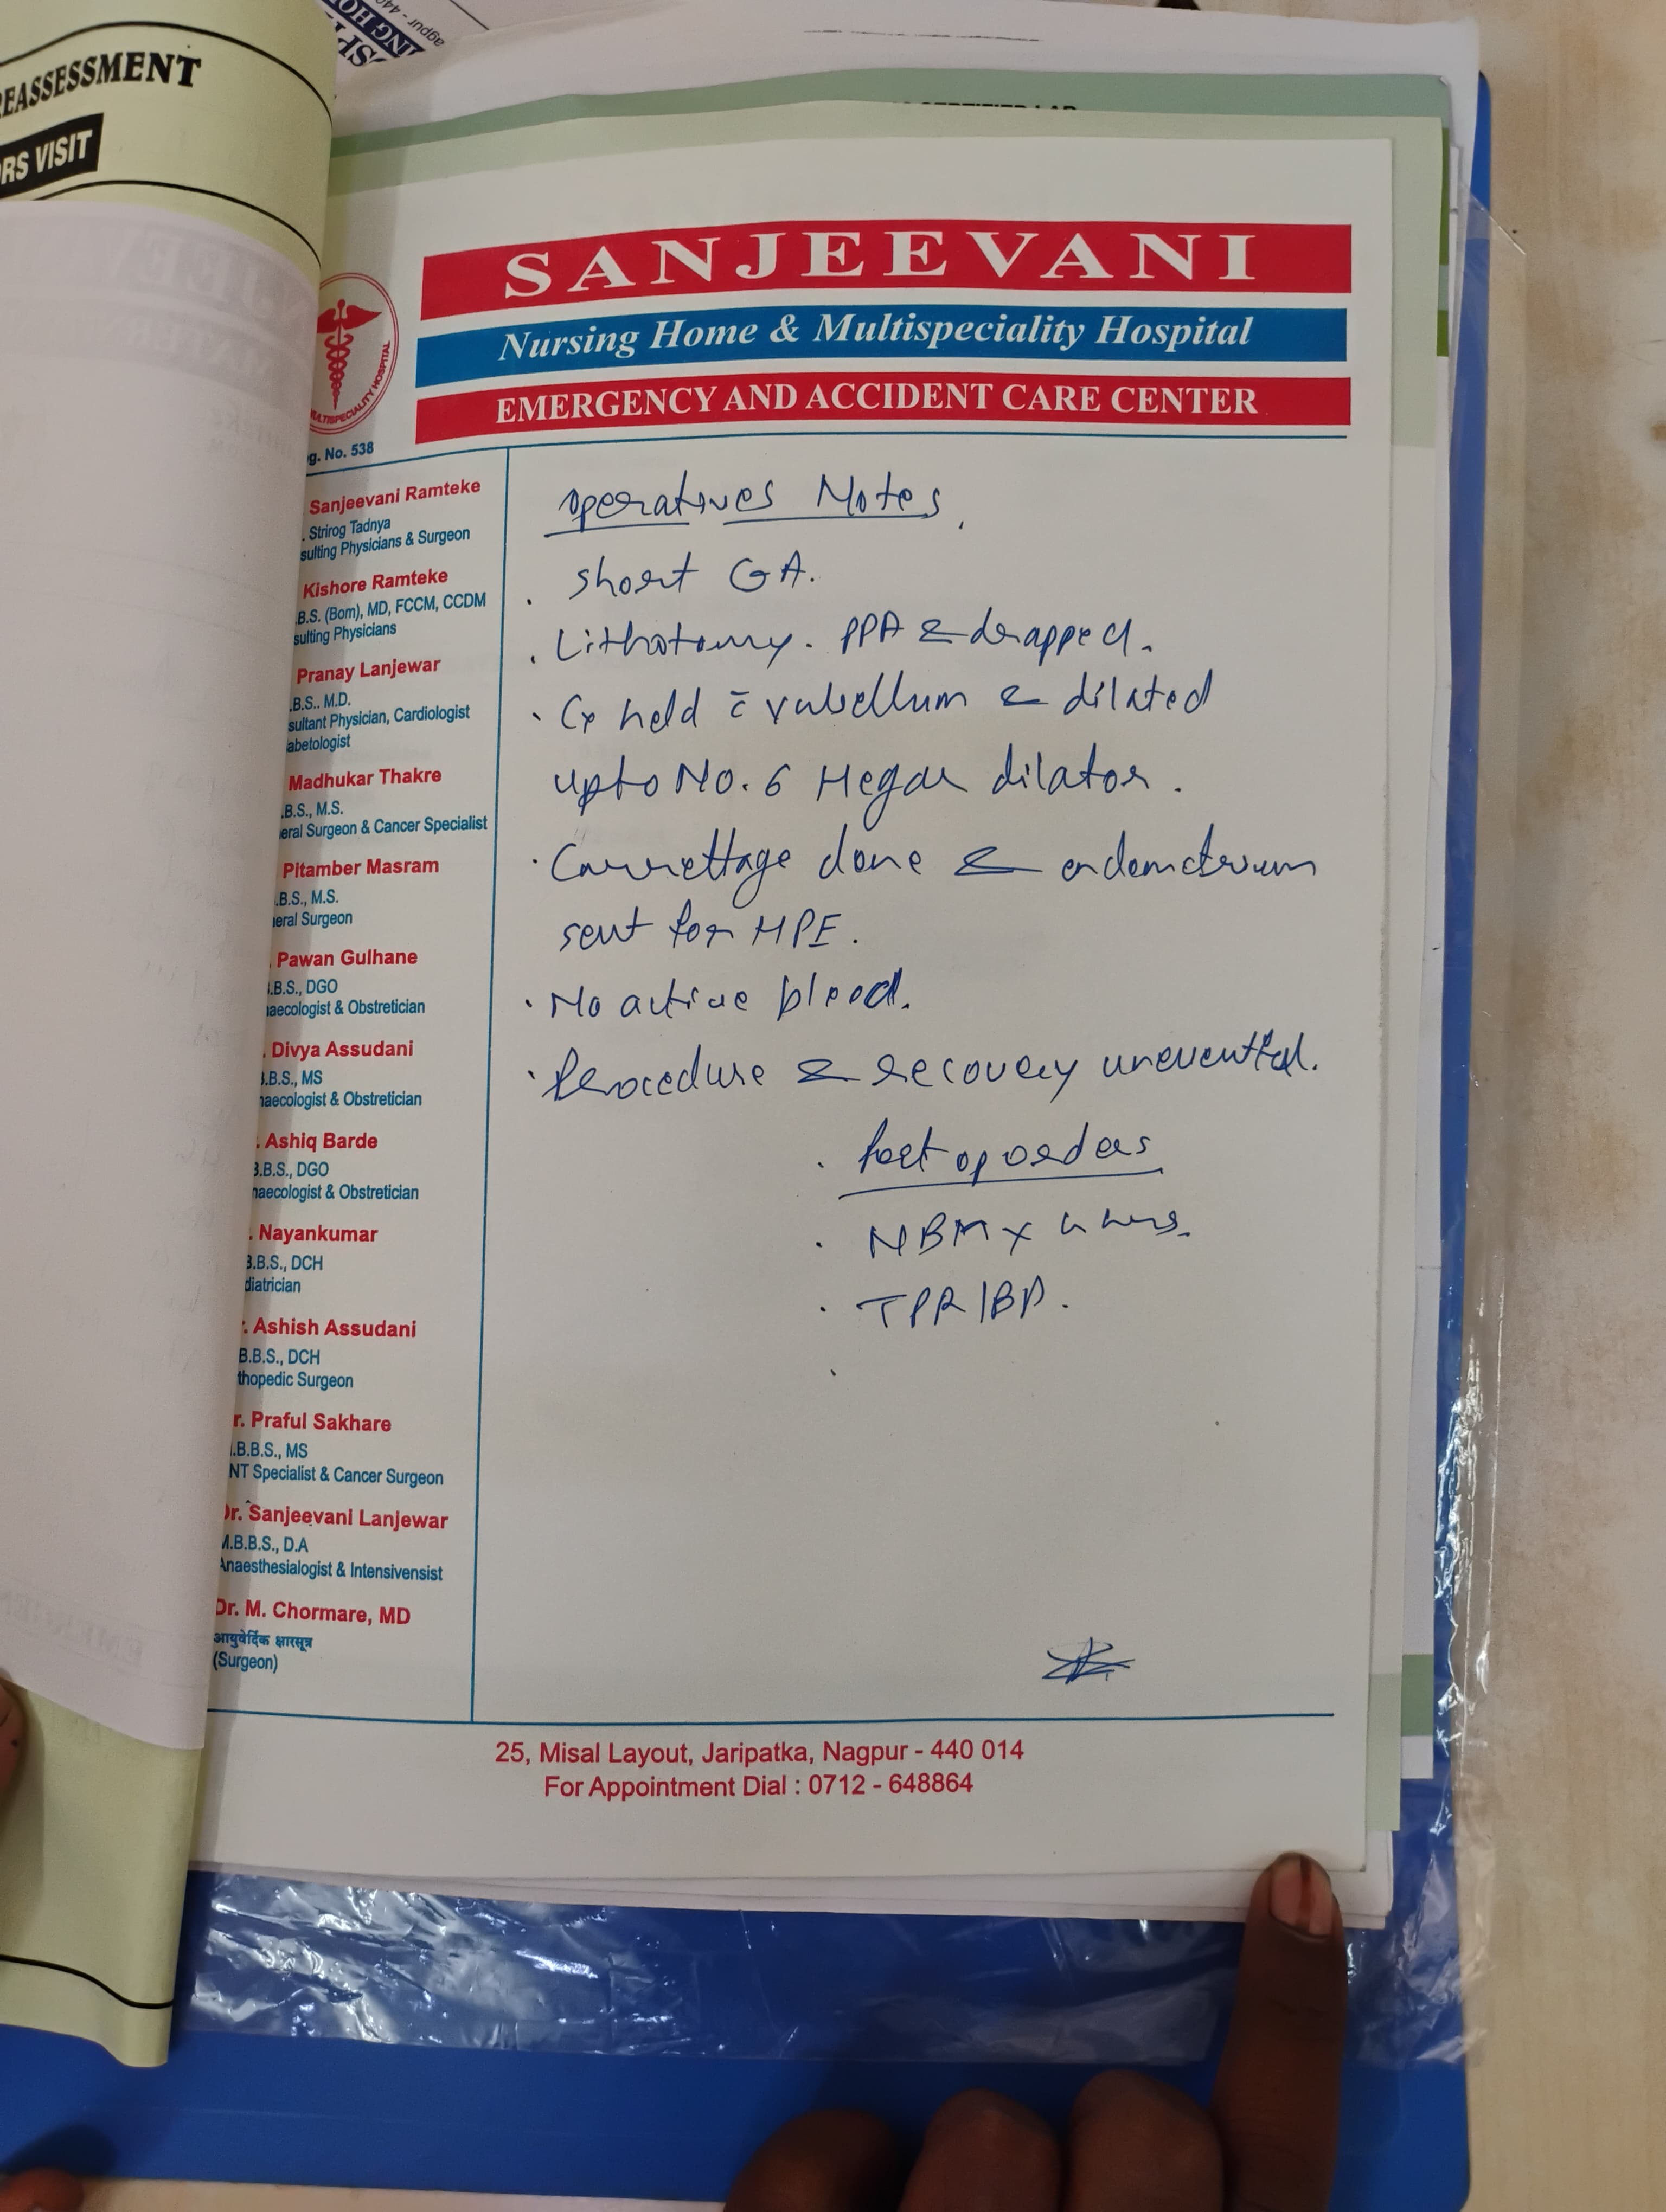 REASSESSMENT
RS VISIT
agpur - 440
ING HO
SANJEEVANI
Nursing Home & Multispeciality Hospital
EMERGENCY AND ACCIDENT CARE CENTER
MULTISPECIALITY HOSPITAL
g. No. 538
Sanjeevani Ramteke
. Strirog Tadnya
sulting Physicians & Surgeon
Kishore Ramteke
.B.S. (Bom), MD, FCCM, CCDM
sulting Physicians
Pranay Lanjewar
.B.S.. M.D.
sultant Physician, Cardiologist
abetologist
Madhukar Thakre
.B.S., M.S.
eral Surgeon & Cancer Specialist
Pitamber Masram
.B.S., M.S.
eral Surgeon
. Pawan Gulhane
.B.S., DGO
aecologist & Obstretician
. Divya Assudani
.B.S., MS
naecologist & Obstretician
. Ashiq Barde
B.B.S., DGO
naecologist & Obstretician
. Nayankumar
B.B.S., DCH
diatrician
r. Ashish Assudani
B.B.S., DCH
thopedic Surgeon
r. Praful Sakhare
.B.B.S., MS
NT Specialist & Cancer Surgeon
Dr. Sanjeevani Lanjewar
M.B.B.S., D.A
Anaesthesialogist & Intensivensist
Dr. M. Chormare, MD
आयुर्वेदिक क्षारसूत्र
(Surgeon)
operatives Notes
. short GA.
. Lithotomy. PPA & drapped.
. Cx held c̄ vulsellum & dilated
upto No. 6 Hegar dilator.
. Currettage done & endometrium
sent for HPE.
. No active bleed.
. Procedure & recovery uneventful.
. Post op orders
. NBM x 4 hrs.
. TPR/BP.
25, Misal Layout, Jaripatka, Nagpur - 440 014
For Appointment Dial : 0712 - 648864